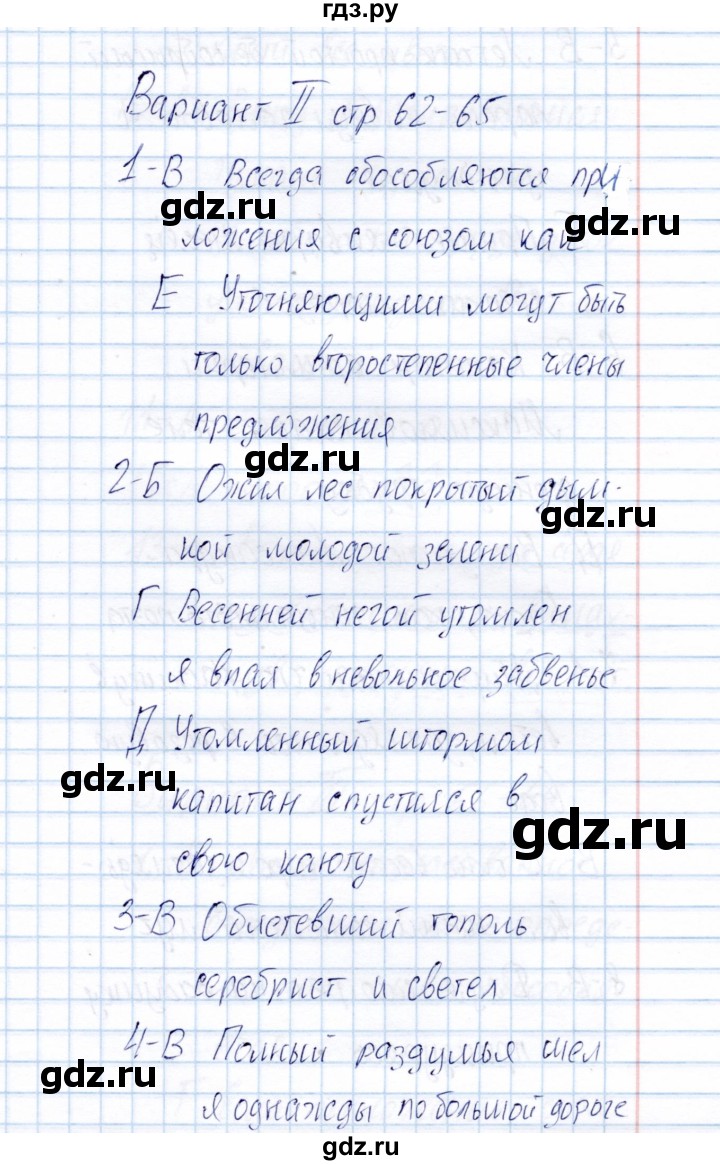 гдз.ру
Вариант II стр 62-65
1-В Всегда обособляются при
gdz.ru
gdz.ru
ложения с союзом как
Е Уточняющими могут быть
только второстепенные члены
предложения
gdz.ru
2-Б Ожил лес покрытый дым-
gdz.ru
кой молодой зелени
Г Весенней негой утомлен
я впал в невольное забвенье
Д Утомленный штормом
gdz.ru
капитан спустился в
gdz.ru
свою каюту
3-В Облетевший тополь
серебрист и светел
4-В Полный раздумья шел
gdz.ru
gdz.ru
я однажды по большой дороге
gdz.ru